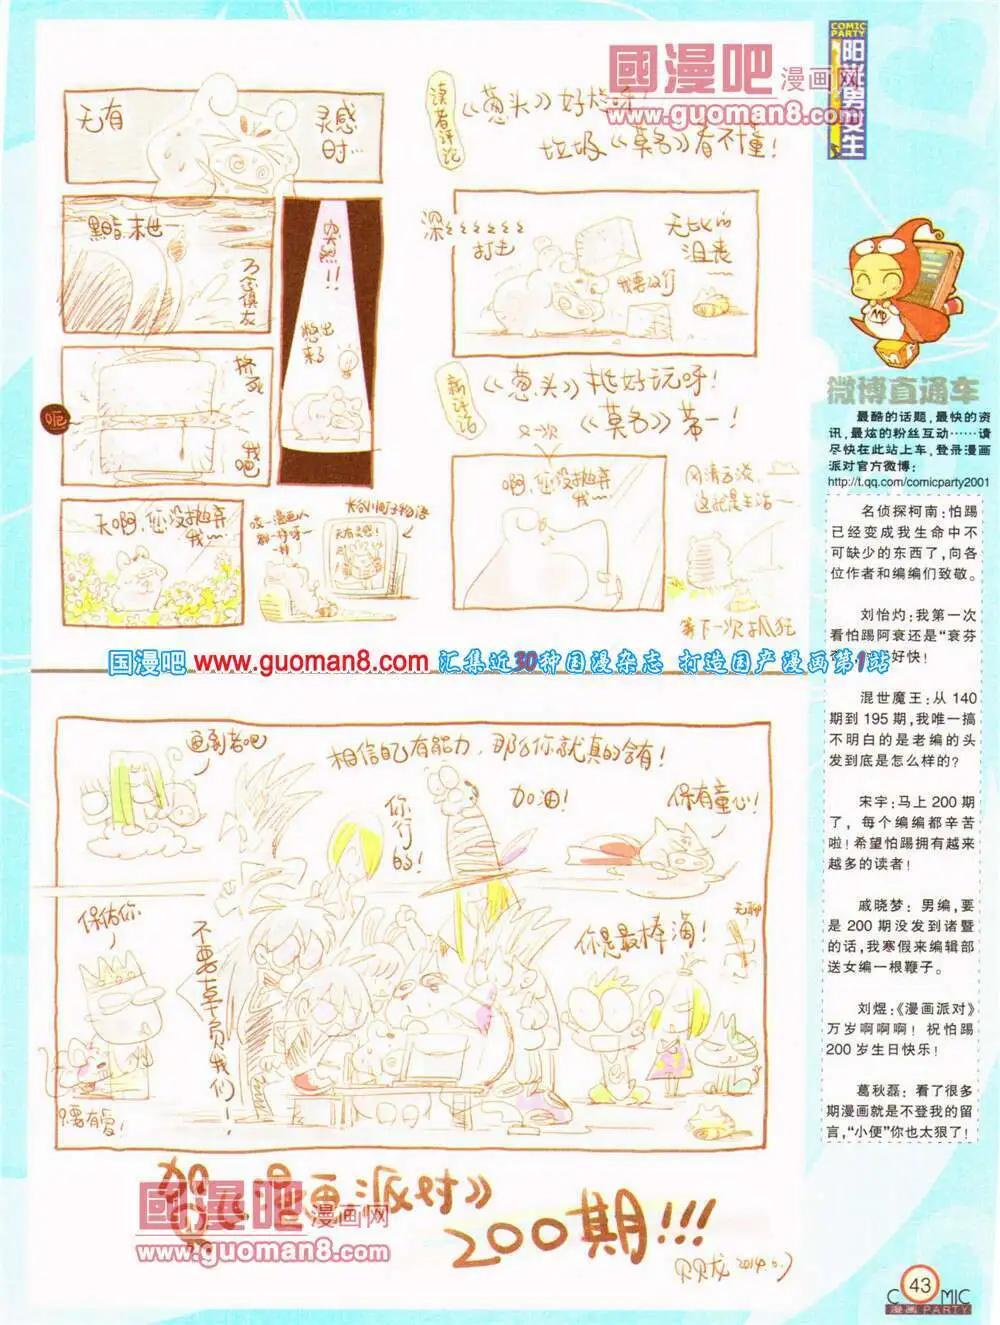 國漫吧
漫画网
www.guoman8.com
COMIC
PARTY
无有
灵感
时…
读者评论
《葱头》好烂呀!
垃圾《莫名》看不懂!
黯 末世
突然!!
憋出
来了
挤死
我吧
呃
天啊,您没抛弃
我
深
打击
无比的
沮丧
《葱头》挺好玩呀!
《莫名》第一!
又一次
啊,您没抛弃
我
风清云淡
这就是生活
等下一次抓狂
国漫吧 www.guoman8.com 汇集近30种国漫杂志 打造国产漫画第1站
相信自己有能力,那么你就真的会有!
你行的!
加油!
保有童心!
保佑你
不要辜负我们!
你是最棒滴!
无聊
只要有爱!
贺《漫画派对》
200期!!!
國漫吧
漫画网
www.guoman8.com
微博直通车
最酷的话题,最快的资
讯,最炫的粉丝互动……请
尽快在此站上车,登录漫画
派对官方微博:
http://t.qq.com/comicparty2001
名侦探柯南:怕踢
已经变成我生命中不
可缺少的东西了,向各
位作者和编编们致敬。
刘怡灼:我第一次
看怕踢阿衰还是“衰芬
好快!
混世魔王:从 140
期到 195 期,我唯一搞
不明白的是老编的头
发到底是怎么样的?
宋宇:马上 200 期
了,每个编编都辛苦
啦!希望怕踢拥有越来
越多的读者!
戚晓梦:男编,要
是 200 期没发到诸暨
的话,我寒假来编辑部
送女编一根鞭子。
刘煜:《漫画派对》
万岁啊啊啊!祝怕踢
200 岁生日快乐!
葛秋磊:看了很多
期漫画就是不登我的留
言,“小便”你也太狠了!
43
COMIC
漫画 PARTY